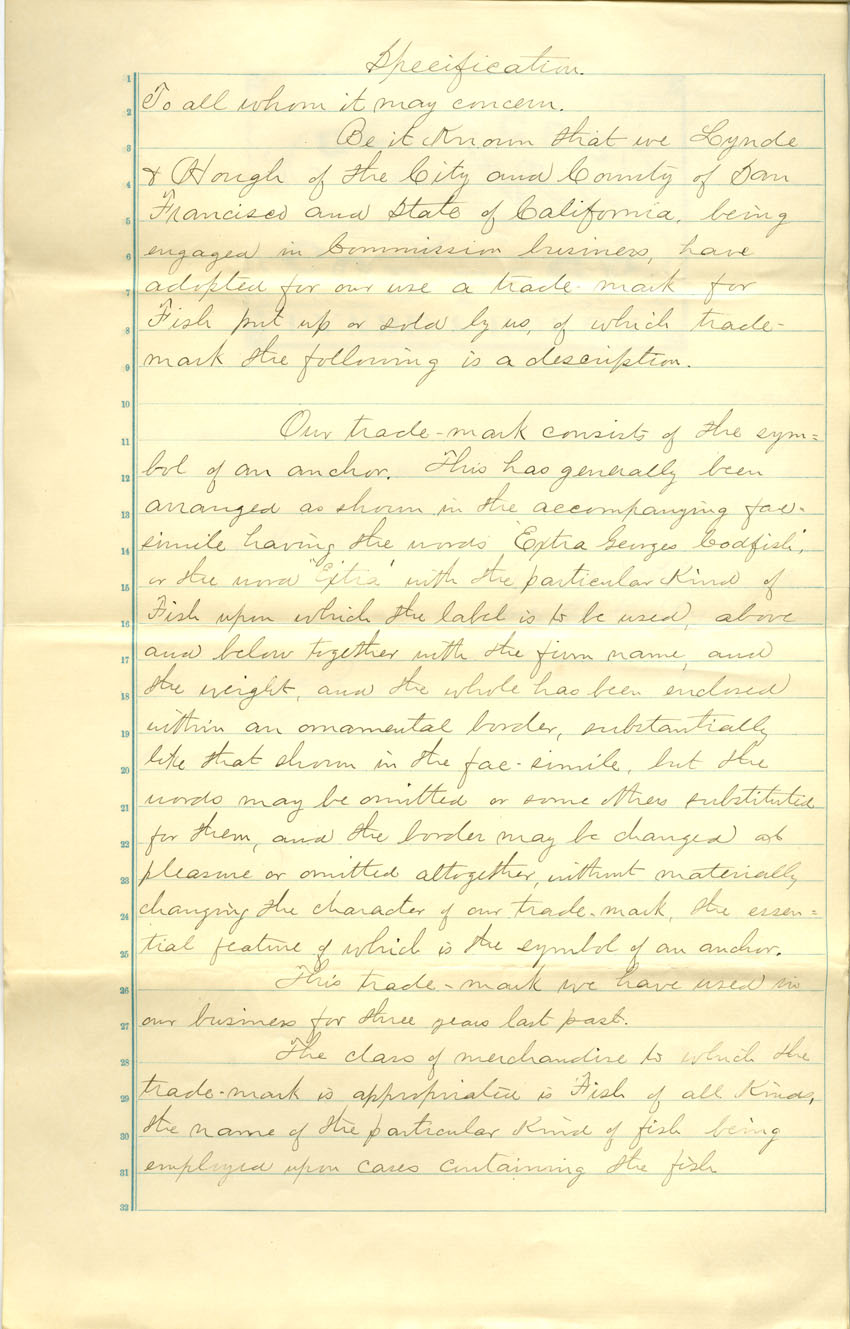 Specification.
To all whom it may concern.
Be it Known that we Lynde
& Hough of the City and County of San
Francisco and State of California, being
engaged in Commission business, have
adopted for our use a trade-mark for
Fish put up or sold by us, of which trade-
mark the following is a description.
Our trade-mark consists of the sym=
bol of an anchor. This has generally been
arranged as shown in the accompanying fac-
simile having the words "Extra Georges Codfish",
or the word "Extra" with the particular Kind of
Fish upon which the label is to be used, above
and below together with the firm name, and
the weight, and the whole has been enclosed
within an ornamental border, substantially
like that shown in the fac-simile, but the
words may be omitted or some others substituted
for them, and the border may be changed at
pleasure or omitted altogether, without materially
changing the character of our trade-mark, the essen=
tial feature of which is the symbol of an anchor.
This trade-mark we have used in
our business for three years last past.
The class of merchandise to which the
trade-mark is appropriated is Fish of all Kinds,
the name of the particular Kind of fish being
employed upon cases containing the fish
1
2
3
4
5
6
7
8
9
10
11
12
13
14
15
16
17
18
19
20
21
22
23
24
25
26
27
28
29
30
31
32